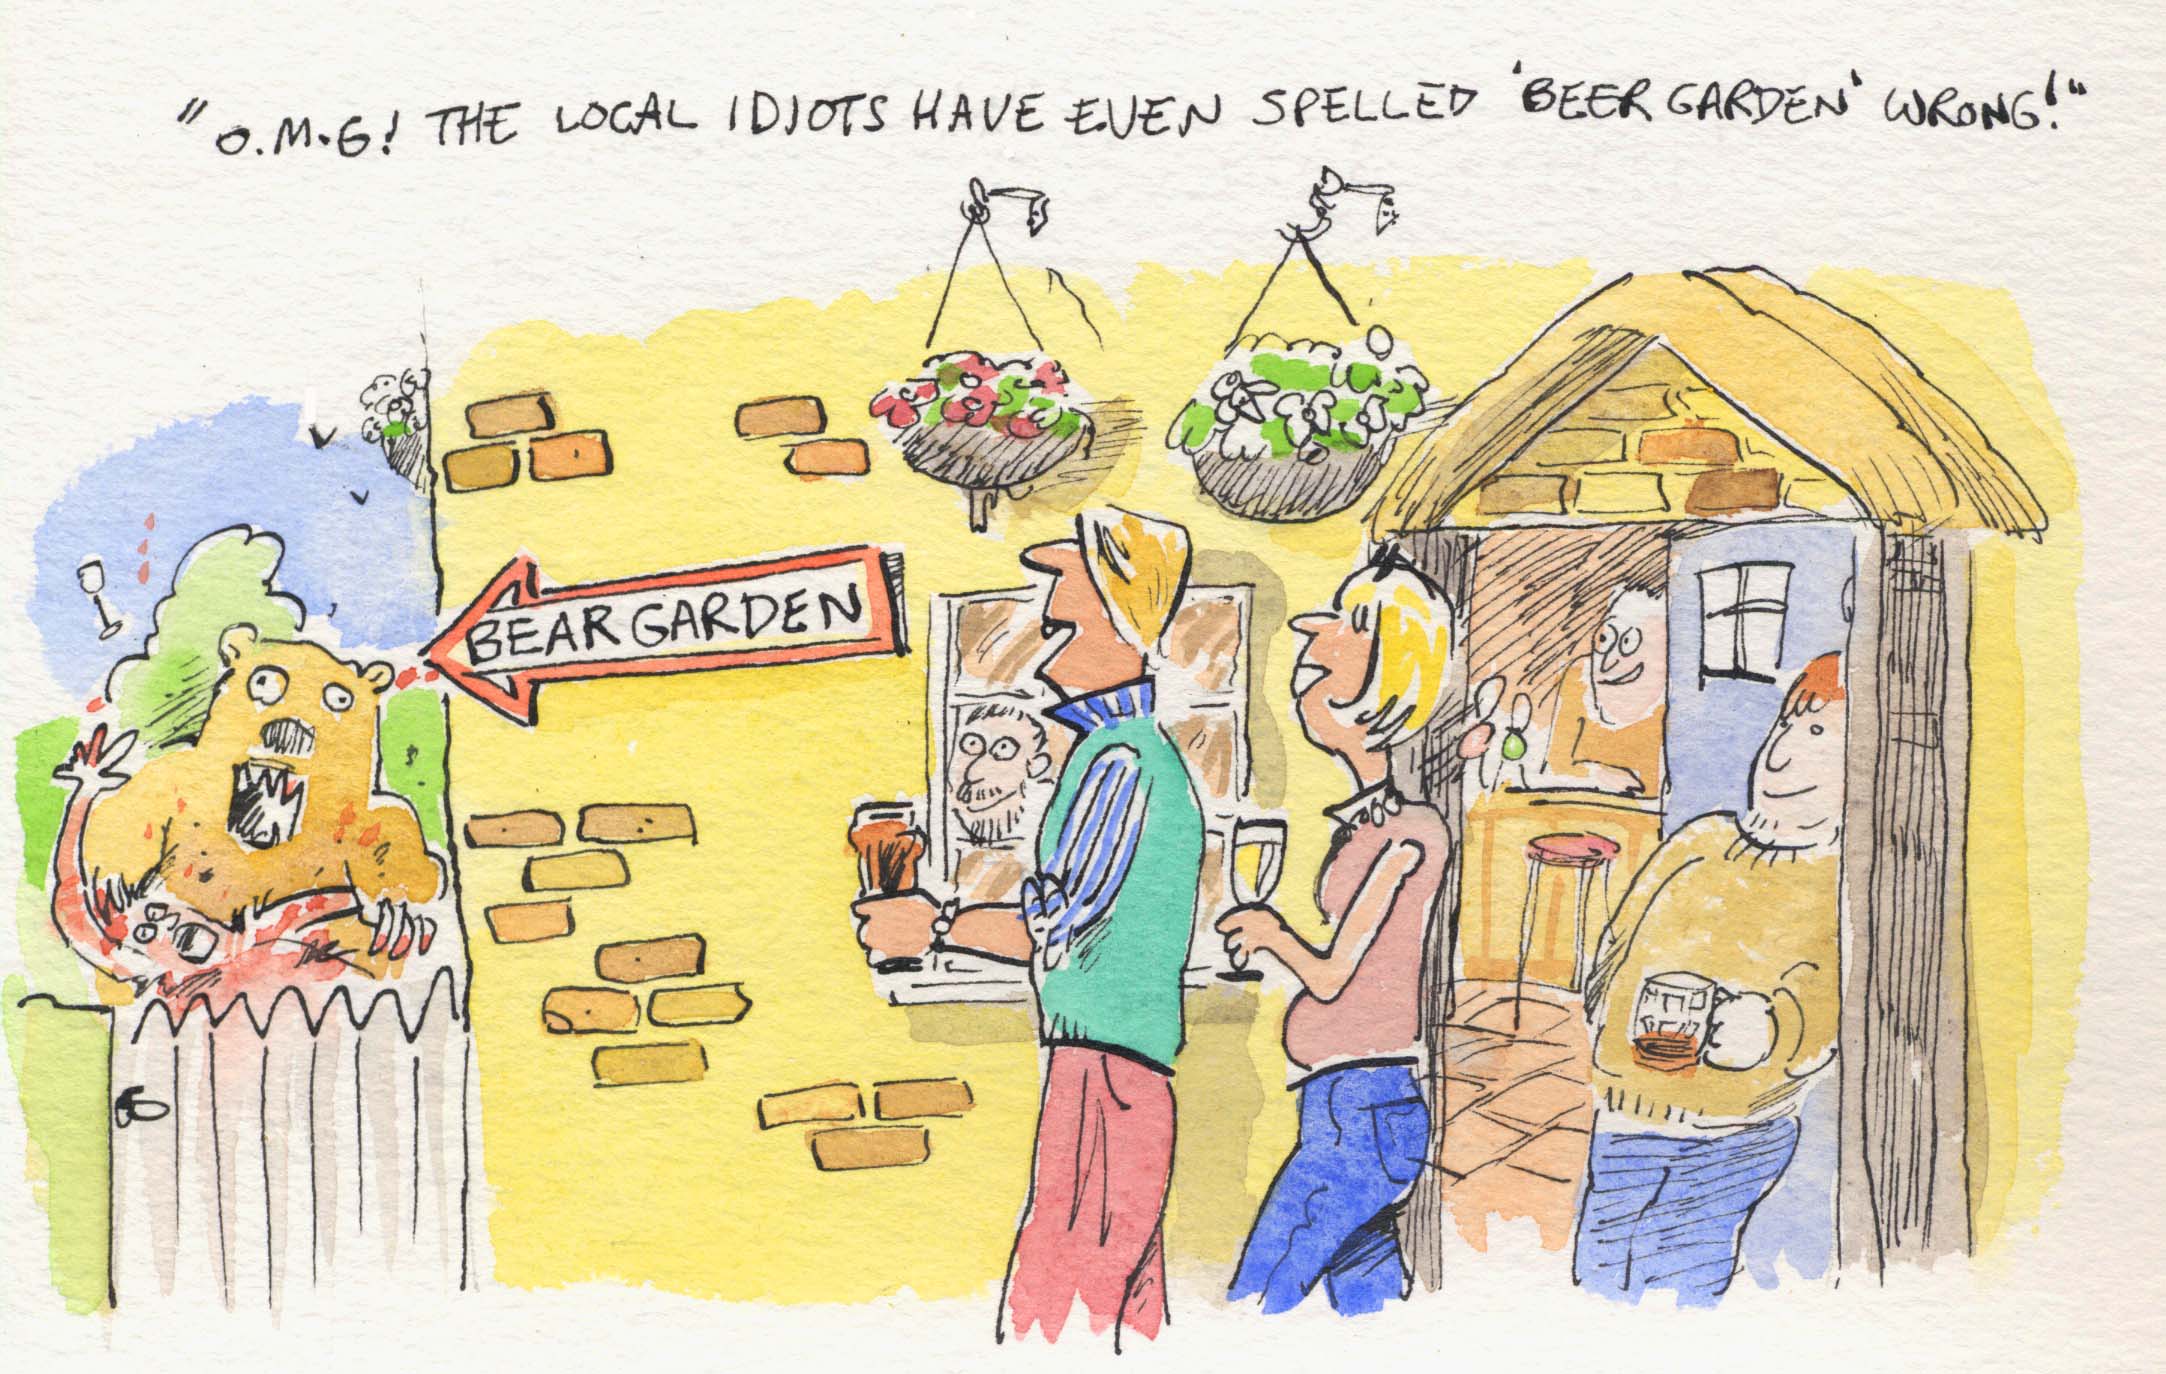 "O.M.G! THE LOCAL IDIOTS HAVE EVEN SPELLED 'BEER GARDEN' WRONG!"
BEAR GARDEN